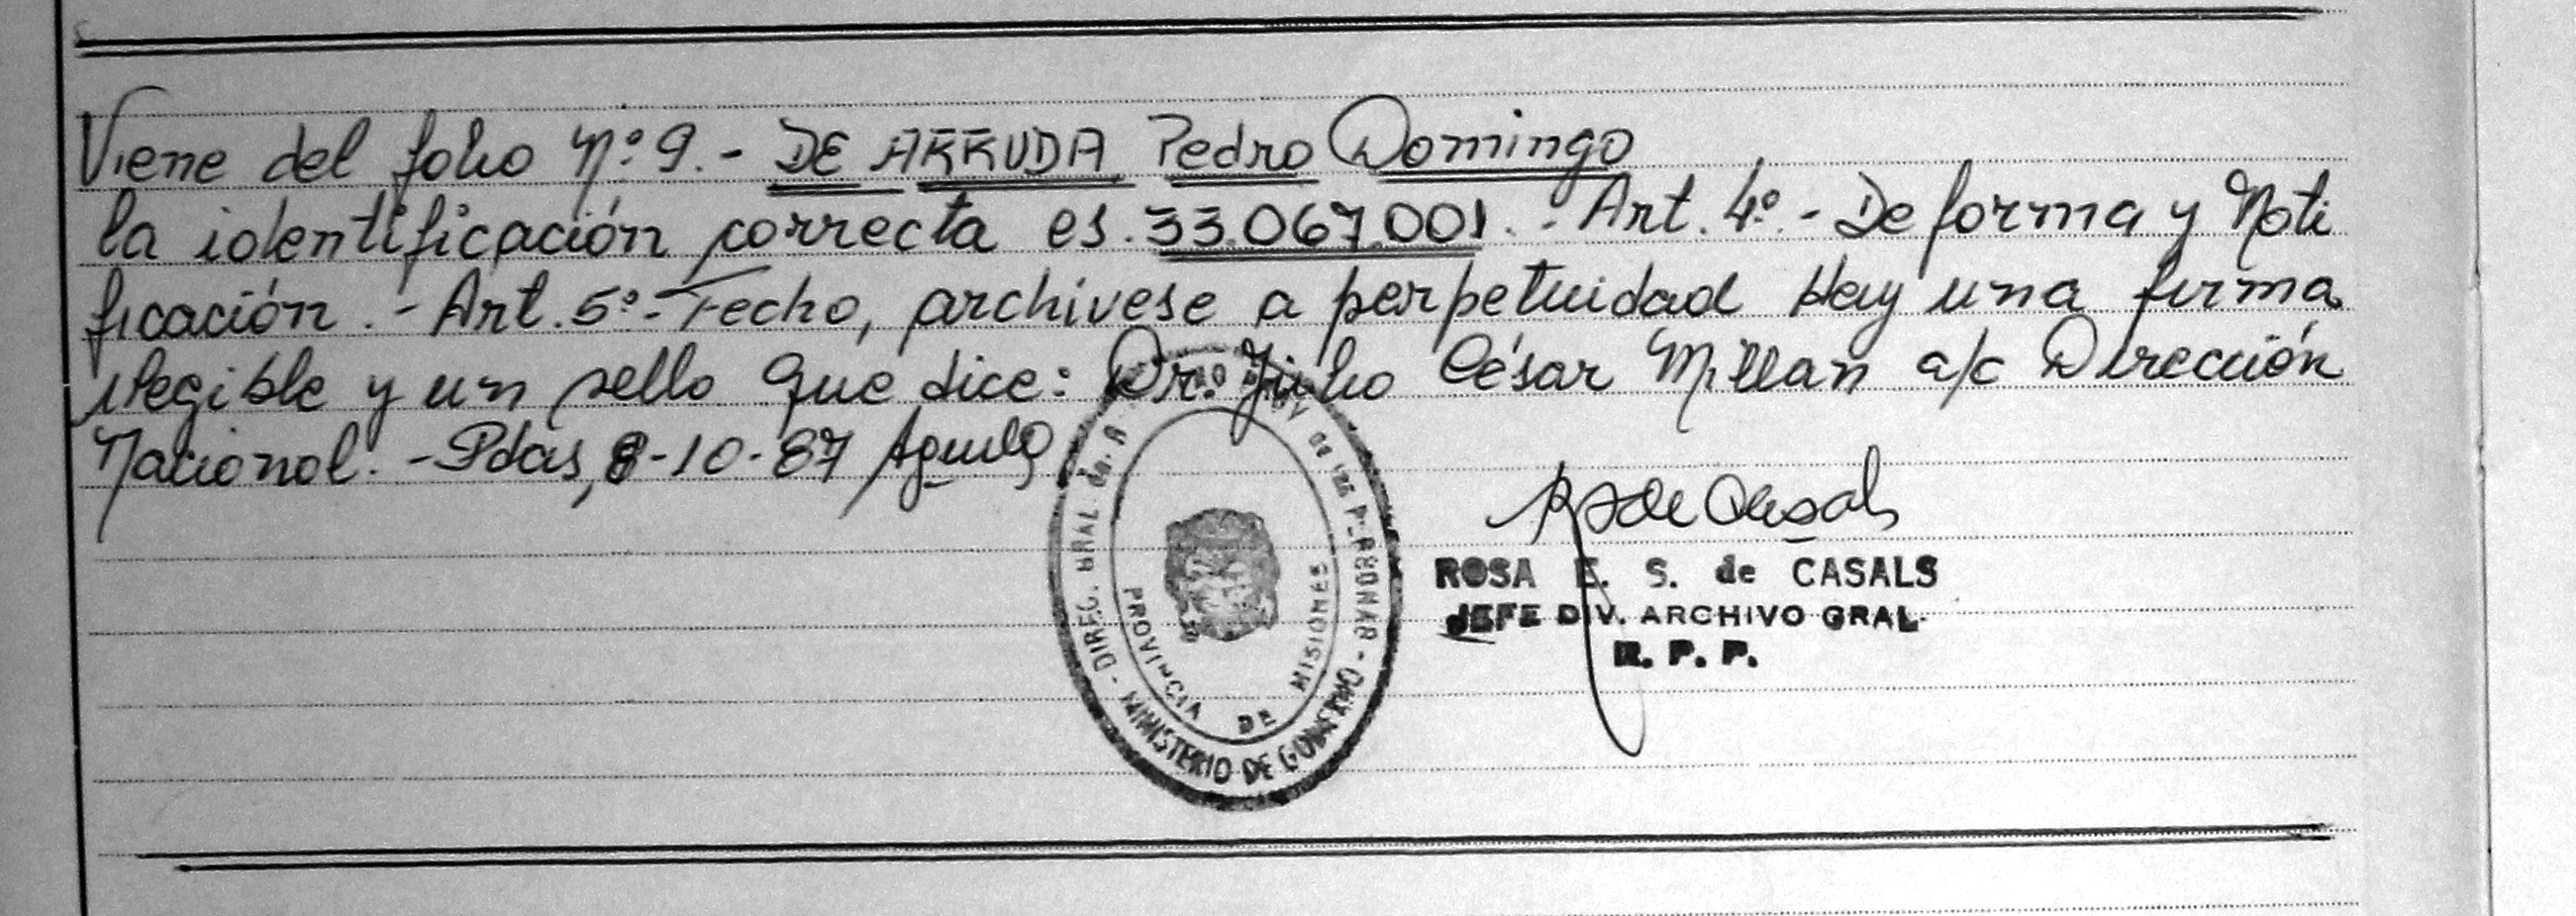 Viene del folio Nº 9.- DE ARRUDA Pedro Domingo
la identificación correcta es. 33.067.001. - Art. 4º. - De forma y Noti
ficación. - Art. 5º - Fecho, archívese a perpetuidad Hay una firma
ilegible y un sello que dice: Dr. Julio César Millan a/c Dirección
Nacional. - Pdas, 8-10-87
ROSA E. S. de CASALS
JEFE DIV. ARCHIVO GRAL.
R. P. P.
DIREC. GRAL. de las PERSONAS - MINISTERIO DE GOBIERNO -
PROVINCIA DE MISIONES